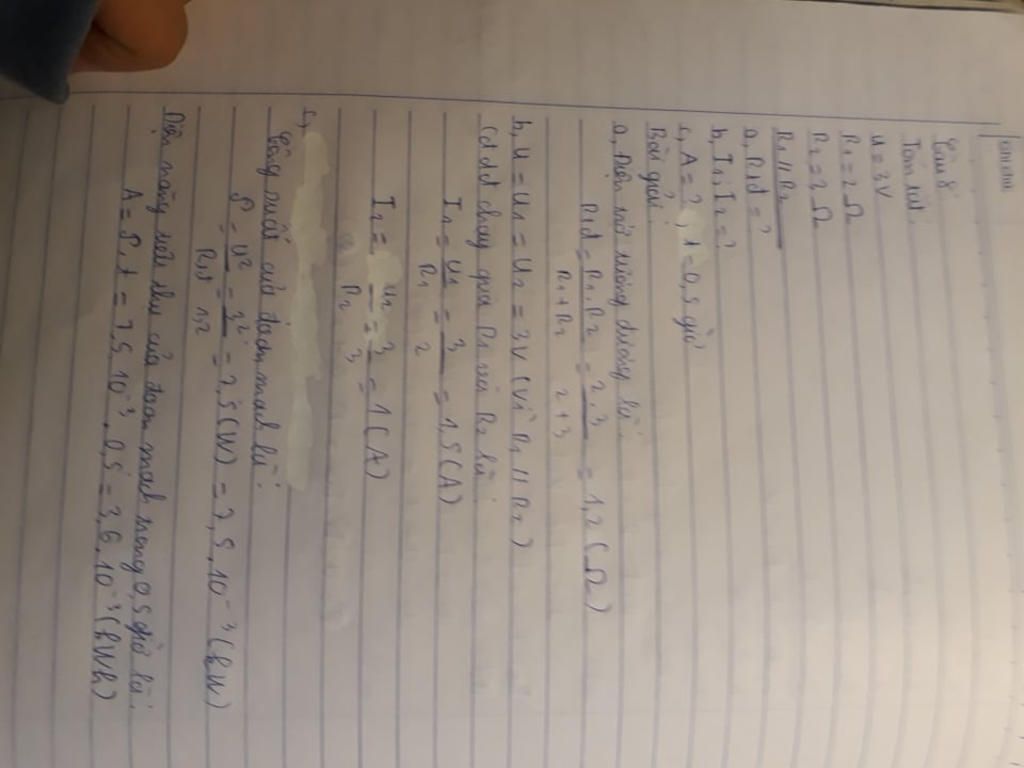 Câu 8
Tóm tắt:
U = 3V
R1 = 2 Ω
R2 = 3 Ω
R1 // R2
a, Rtđ = ?
b, I1, I2 = ?
c, A = ?, t = 0,5 giờ
Bài giải:
a, Điện trở tương đương là:
Rtđ = R1.R2 / R1+R2 = 2.3 / 2+3 = 1,2 (Ω)
b, U = U1 = U2 = 3V (vì R1 // R2)
Cđdđ chạy qua R1 và R2 là:
I1 = U1 / R1 = 3 / 2 = 1,5 (A)
I2 = U2 / R2 = 3 / 3 = 1 (A)
c,
Công suất của đoạn mạch là:
P = U² / Rtđ = 3² / 1,2 = 7,5 (W) = 7,5.10⁻³ (kW)
Điện năng tiêu thụ của đoạn mạch trong 0,5 giờ là:
A = P.t = 7,5.10⁻³.0,5 = 3,6.10⁻³ (kWh)